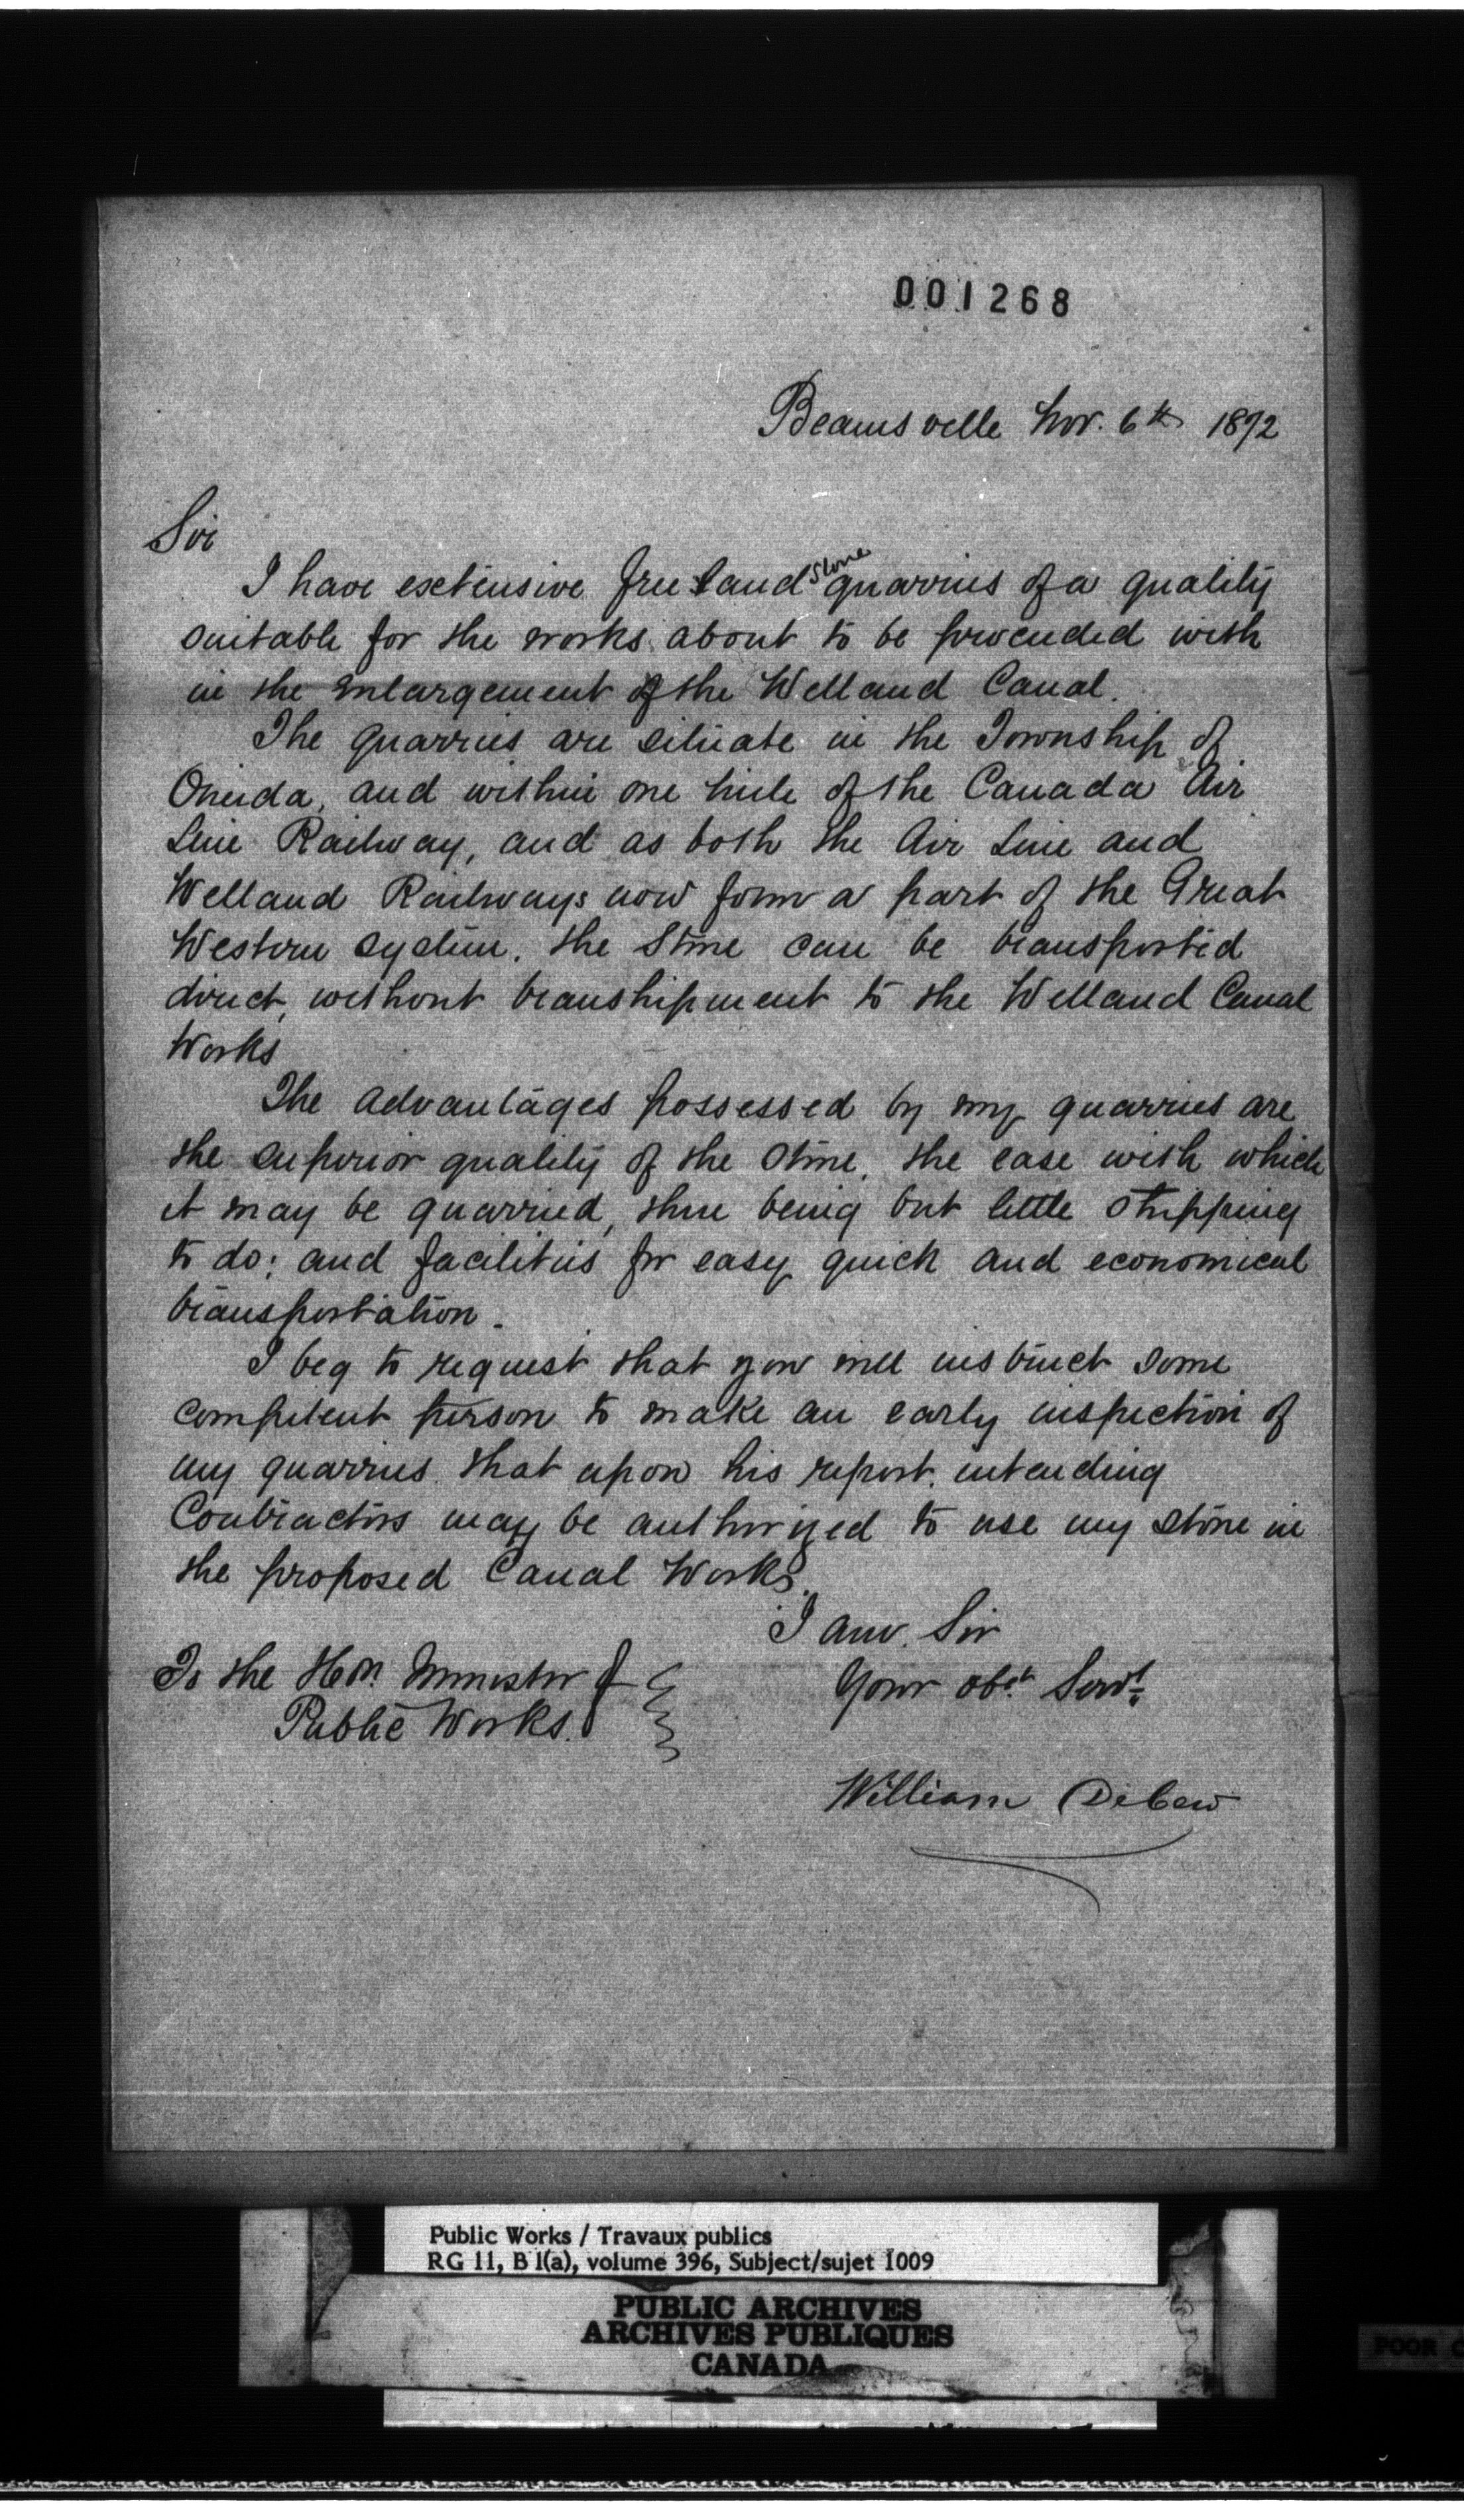 001268
Beamsville Nov. 6th 1872
Sir
I have extensive free sand stone quarries of a quality
suitable for the works about to be proceeded with
in the enlargement of the Welland Canal.
The quarries are situate in the Township of
Oneida, and within one mile of the Canada Air
Line Railway, and as both the Air Line and
Welland Railways now form a part of the Great
Western System, the Stone can be transported
direct, without transhipment to the Welland Canal
Works
The advantages possessed by my quarries are
the superior quality of the Stone, the ease with which
it may be quarried, there being but little stripping
to do; and facilities for easy quick and economical
transportation.
I beg to request that you will instruct some
competent person to make an early inspection of
my quarries that upon his report, intending
Contractors may be authorized to use my stone in
the proposed Canal Works.
I am, Sir
Your obt. Servt.
To the Hon. Minister of
Public Works.
William
Public Works / Travaux publics
RG 11, B 1(a), volume 396, Subject/sujet 1009
PUBLIC ARCHIVES
ARCHIVES PUBLIQUES
CANADA
POOR